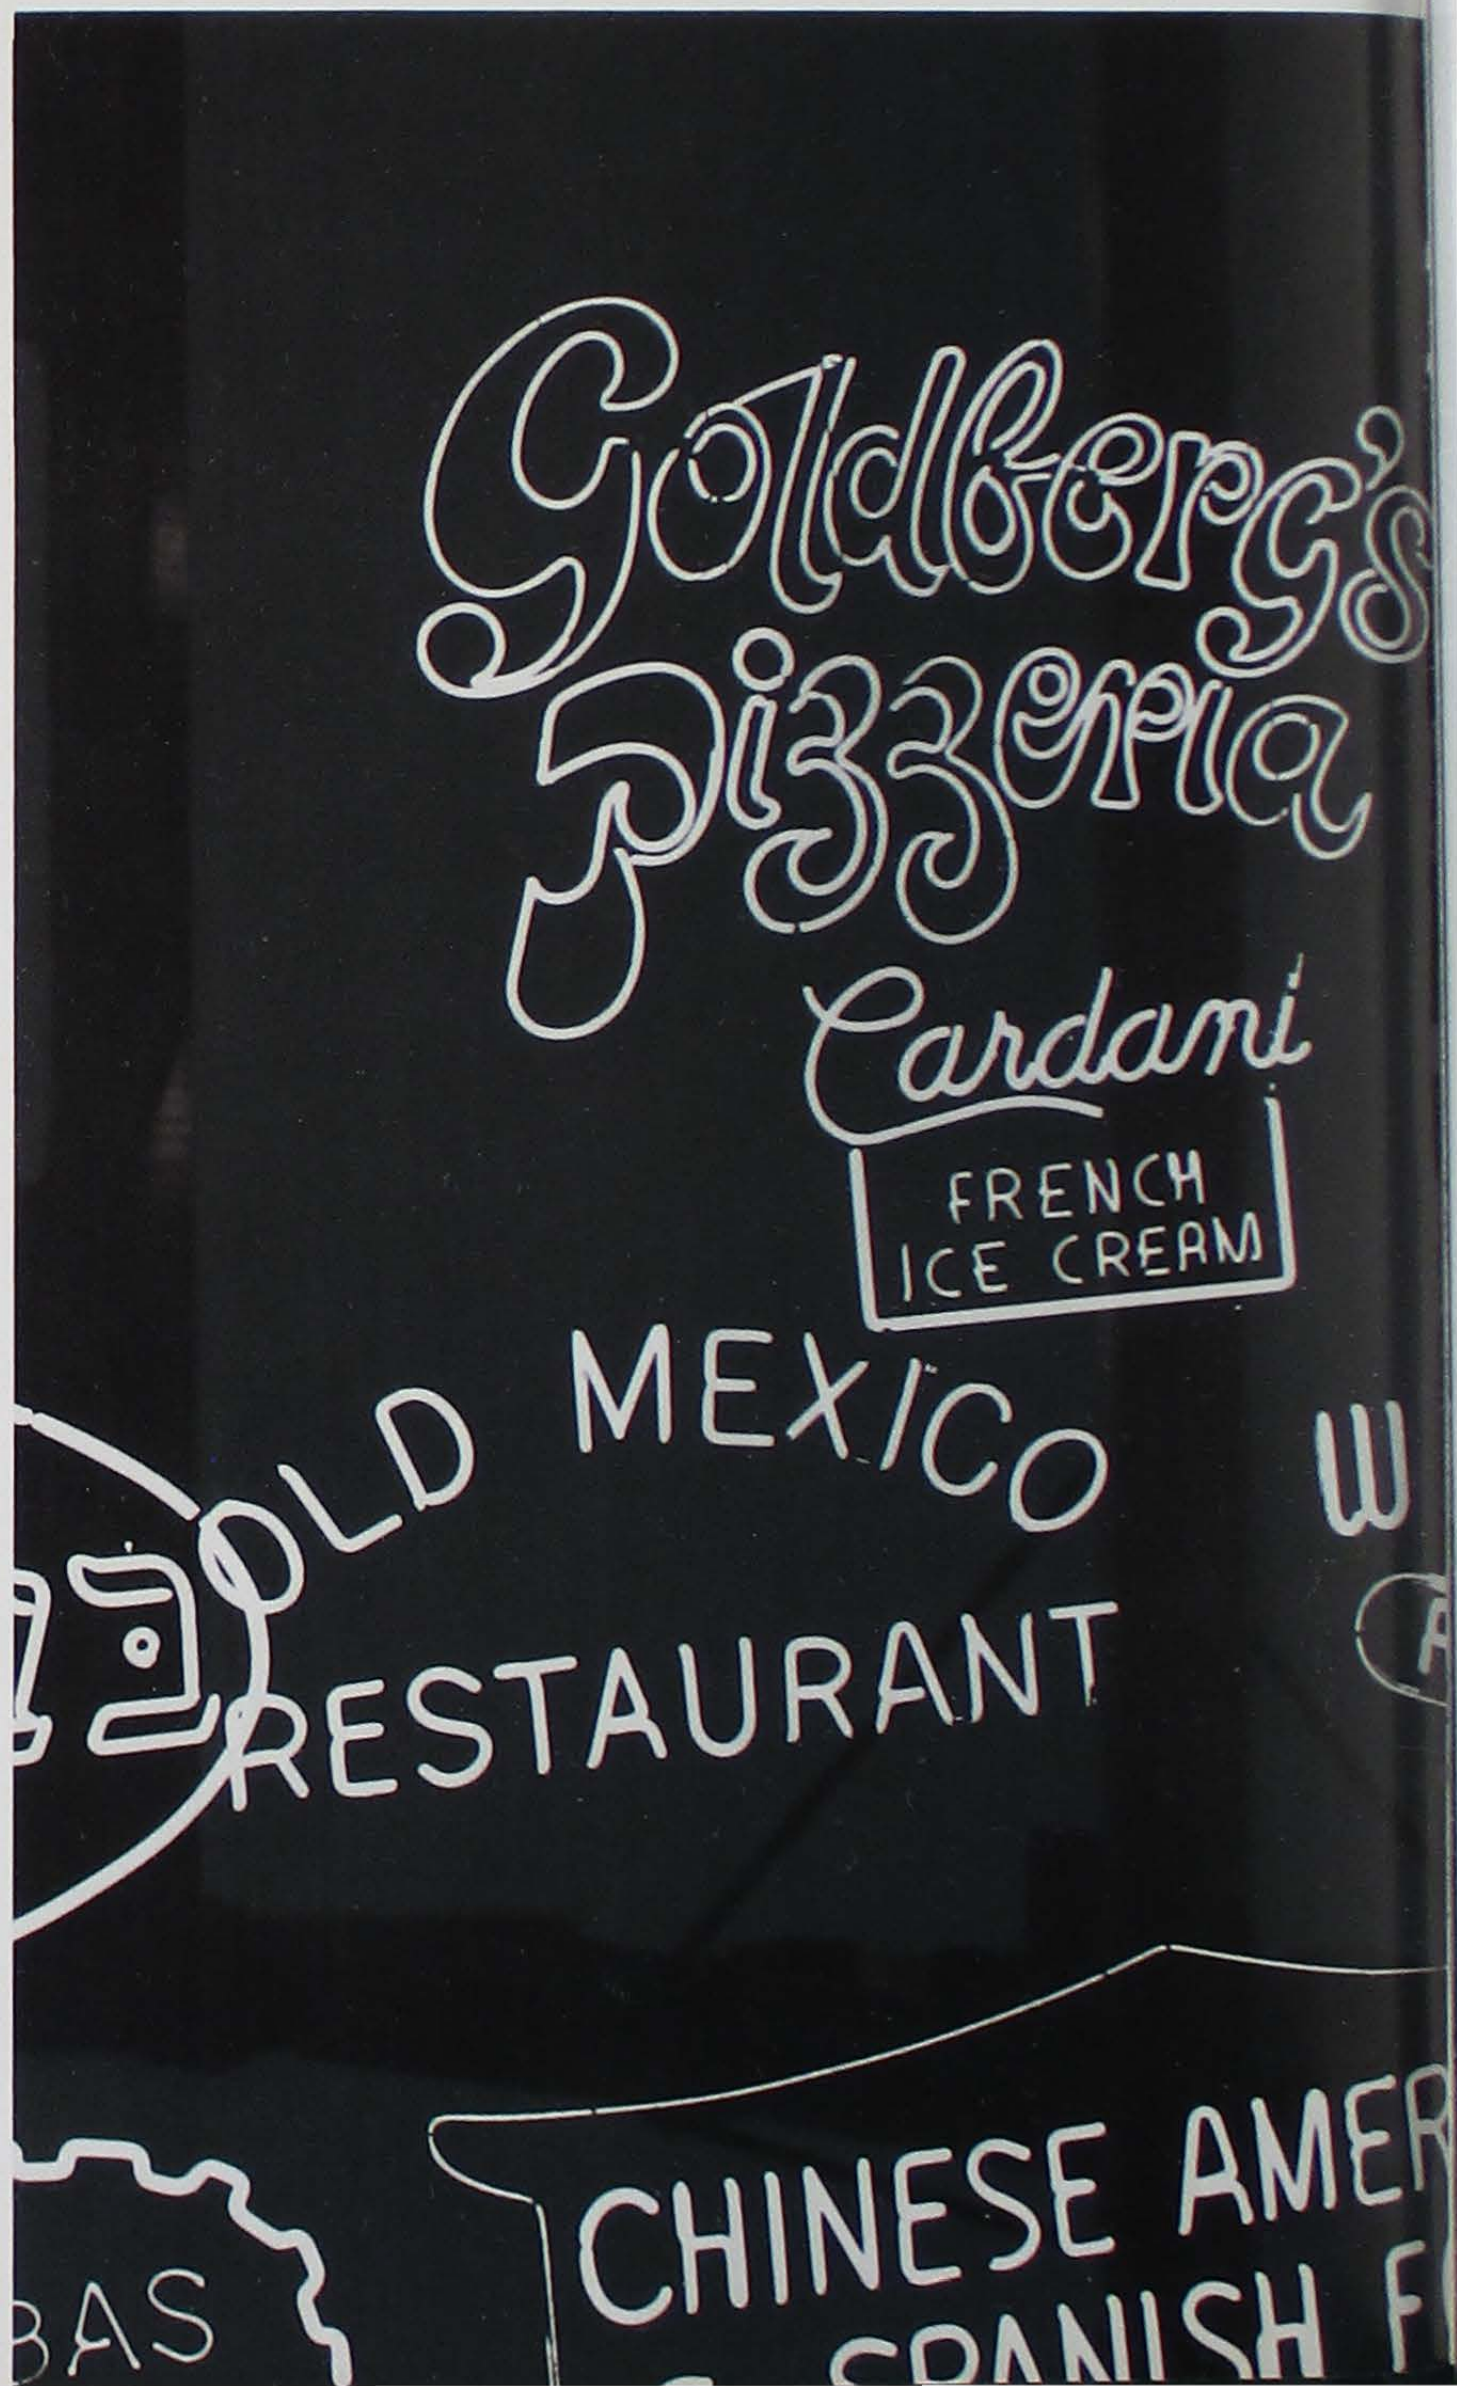 Goldberg's
Pizzeria
Cardani
FRENCH
ICE CREAM
OLD MEXICO
W
RESTAURANT
CHINESE AMER
SPANISH F
BAS